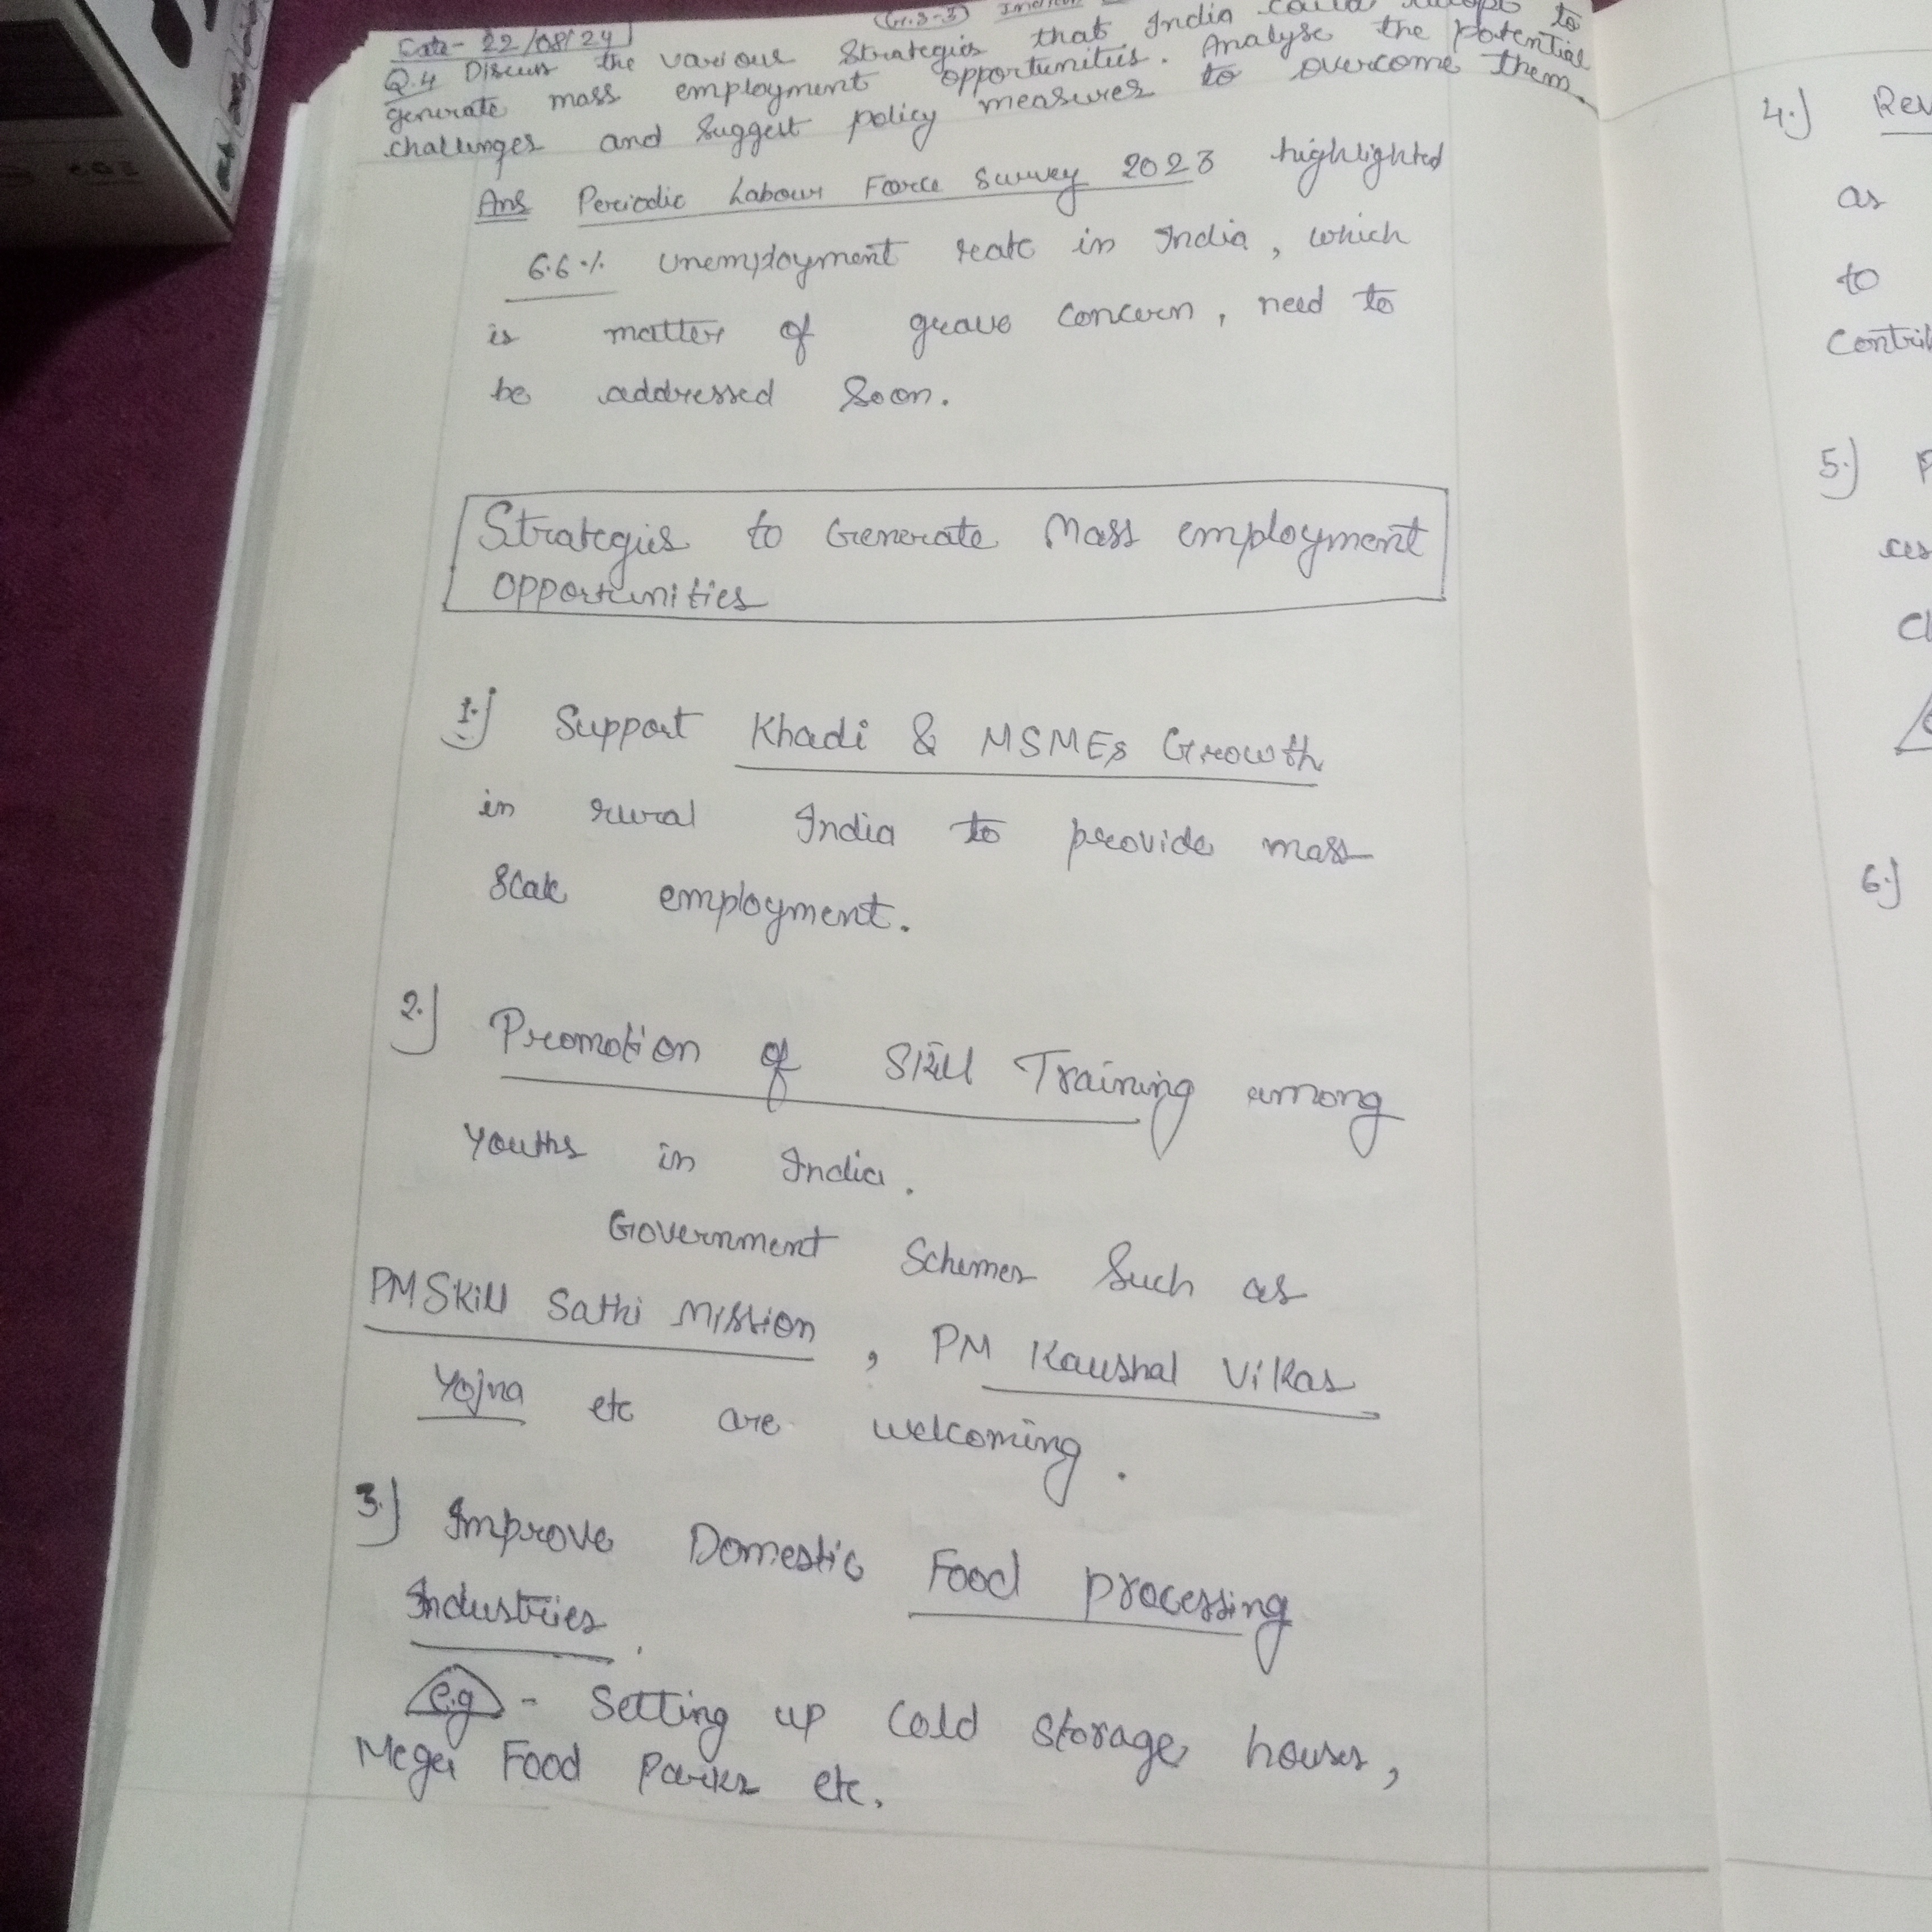 Date- 22/08/24
(G.S-3)
Q.4 Discuss the various Strategies that India could adopt to
generate mass employment opportunities. Analyse the potential
challenges and Suggest policy measures to overcome them.
Ans Periodic Labour Force Survey 2023 highlighted
6.6% Unemployment rate in India, which
is matter of grave concern, need to
be addressed Soon.
Strategies to Generate Mass employment
opportunities
1.) Support Khadi & MSMEs Growth
in rural India to provide mass
Scale employment.
2.) Promotion of Skill Training among
Youths in India.
Government Schemes Such as
PM Skill Sathi Mission, PM Kaushal Vikas
Yojna etc are welcoming.
3.) Improve Domestic Food processing
Industries.
e.g - Setting up Cold storage houses,
Mega Food Parks etc.
4.)
as
to
5.)
6.)